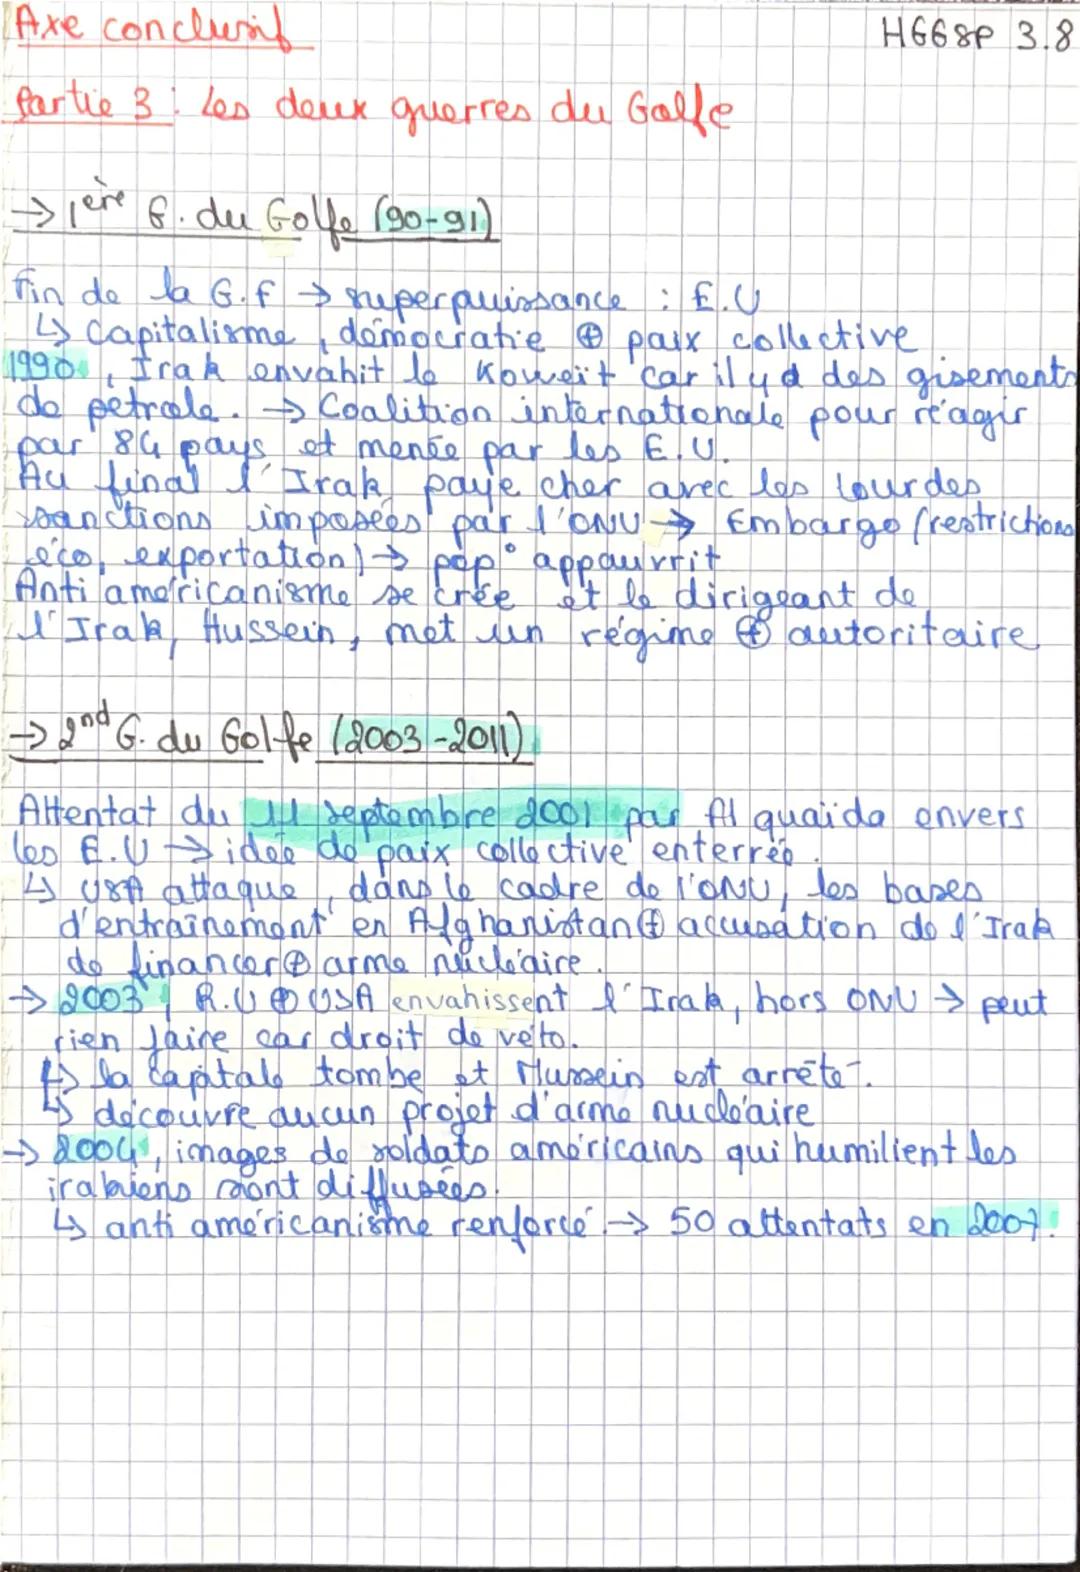 Axe conclusif
HGGSP 3.8
Partie 3 : Les deux guerres du Golfe
→ 1ère G. du Golfe (90-91)
Fin de la G.F → superpuissance : E.U
↳ Capitalisme, démocratie ⊕ paix collective
1990, Irak envahit le Koweït car il y a des gisements
de pétrole. → Coalition internationale pour réagir
par 84 pays et menée par les E.U.
Au final l'Irak paye cher avec les lourdes
sanctions imposées par l'ONU → Embargo (restrictions
éco, exportation) → pop° appauvrit
Anti américanisme se crée et le dirigeant de
l'Irak, Hussein, met un régime ⊕ autoritaire
→ 2nd G. du Golfe (2003-2011)
Attentat du 11 septembre 2001 par Al quaïda envers
les E.U → idée de paix collective enterrée.
↳ USA attaque, dans le cadre de l'ONU, les bases
d'entraînement en Afghanistan ⊕ accusation de l'Irak
de financer ⊕ arme nucléaire.
→ 2003, R.U ⊕ USA envahissent l'Irak, hors ONU → peut
rien faire car droit de véto.
↳ la capitale tombe et Hussein est arrêté.
↳ découvre aucun projet d'arme nucléaire
→ 2004, images de soldats américains qui humilient les
irakiens sont diffusées.
↳ anti américanisme renforcé. → 50 attentats en 2007.